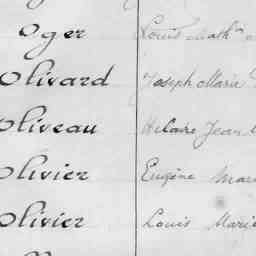 Oger Louis Math
Olivard Joseph Maria
Oliveau Hilaire Jean
Olivier Eugène
Olivier Louis Marie